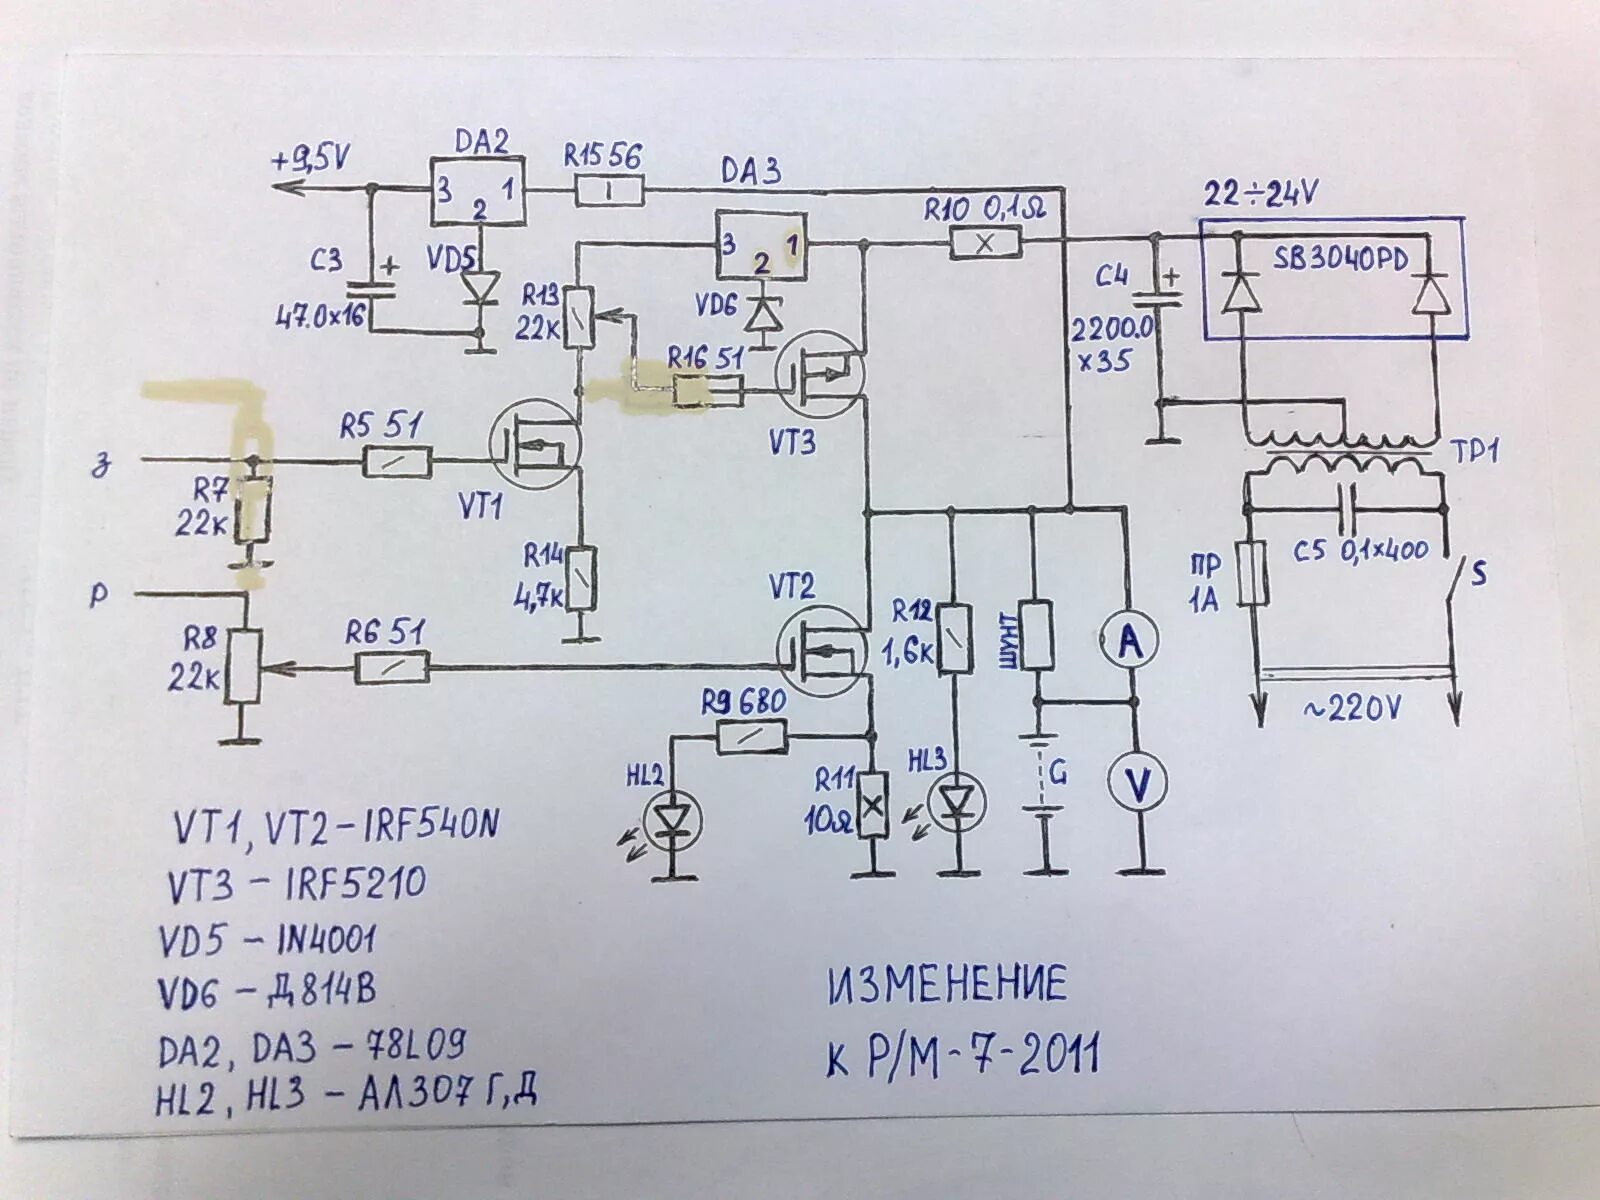 +9,5V
DA2
3
1
2
R15 56
DA3
3
1
2
R10 0,1Ω
22÷24V
SB3040PD
C3
+
47.0x16
VD5
R13
22к
VD6
R16 51
C4
+
2200.0
x35
VT3
З
R5 51
VT1
R7
22к
ТР1
C5 0,1x400
ПР
1А
S
~220V
R14
4,7к
VT2
P
R8
22к
R6 51
R12
1,6к
ШУНТ
A
R9 680
HL2
R11
10Ω
HL3
G
V
VT1, VT2 - IRF540N
VT3 - IRF5210
VD5 - IN4001
VD6 - Д814В
DA2, DA3 - 78L09
HL2, HL3 - АЛ307 Г,Д
ИЗМЕНЕНИЕ
к Р/М-7-2011